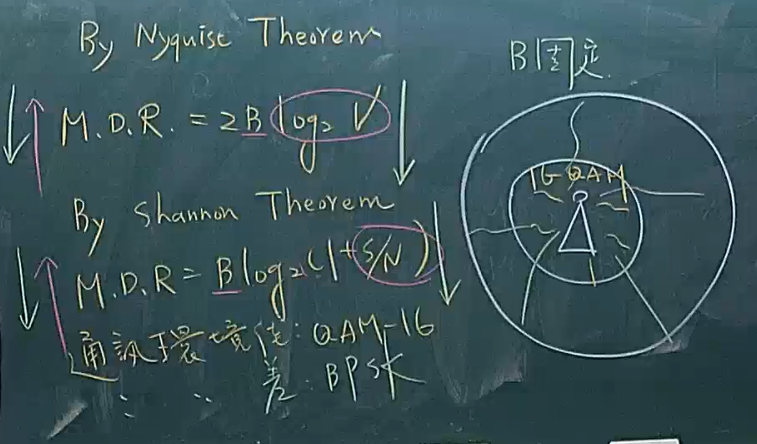 By Nyquist Theorem
M.D.R. = 2B log₂ V
By Shannon Theorem
M.D.R = B log₂(1+S/N)
通訊環境佳: QAM-16
〃 〃 差: BPSK
B固定
16 QAM